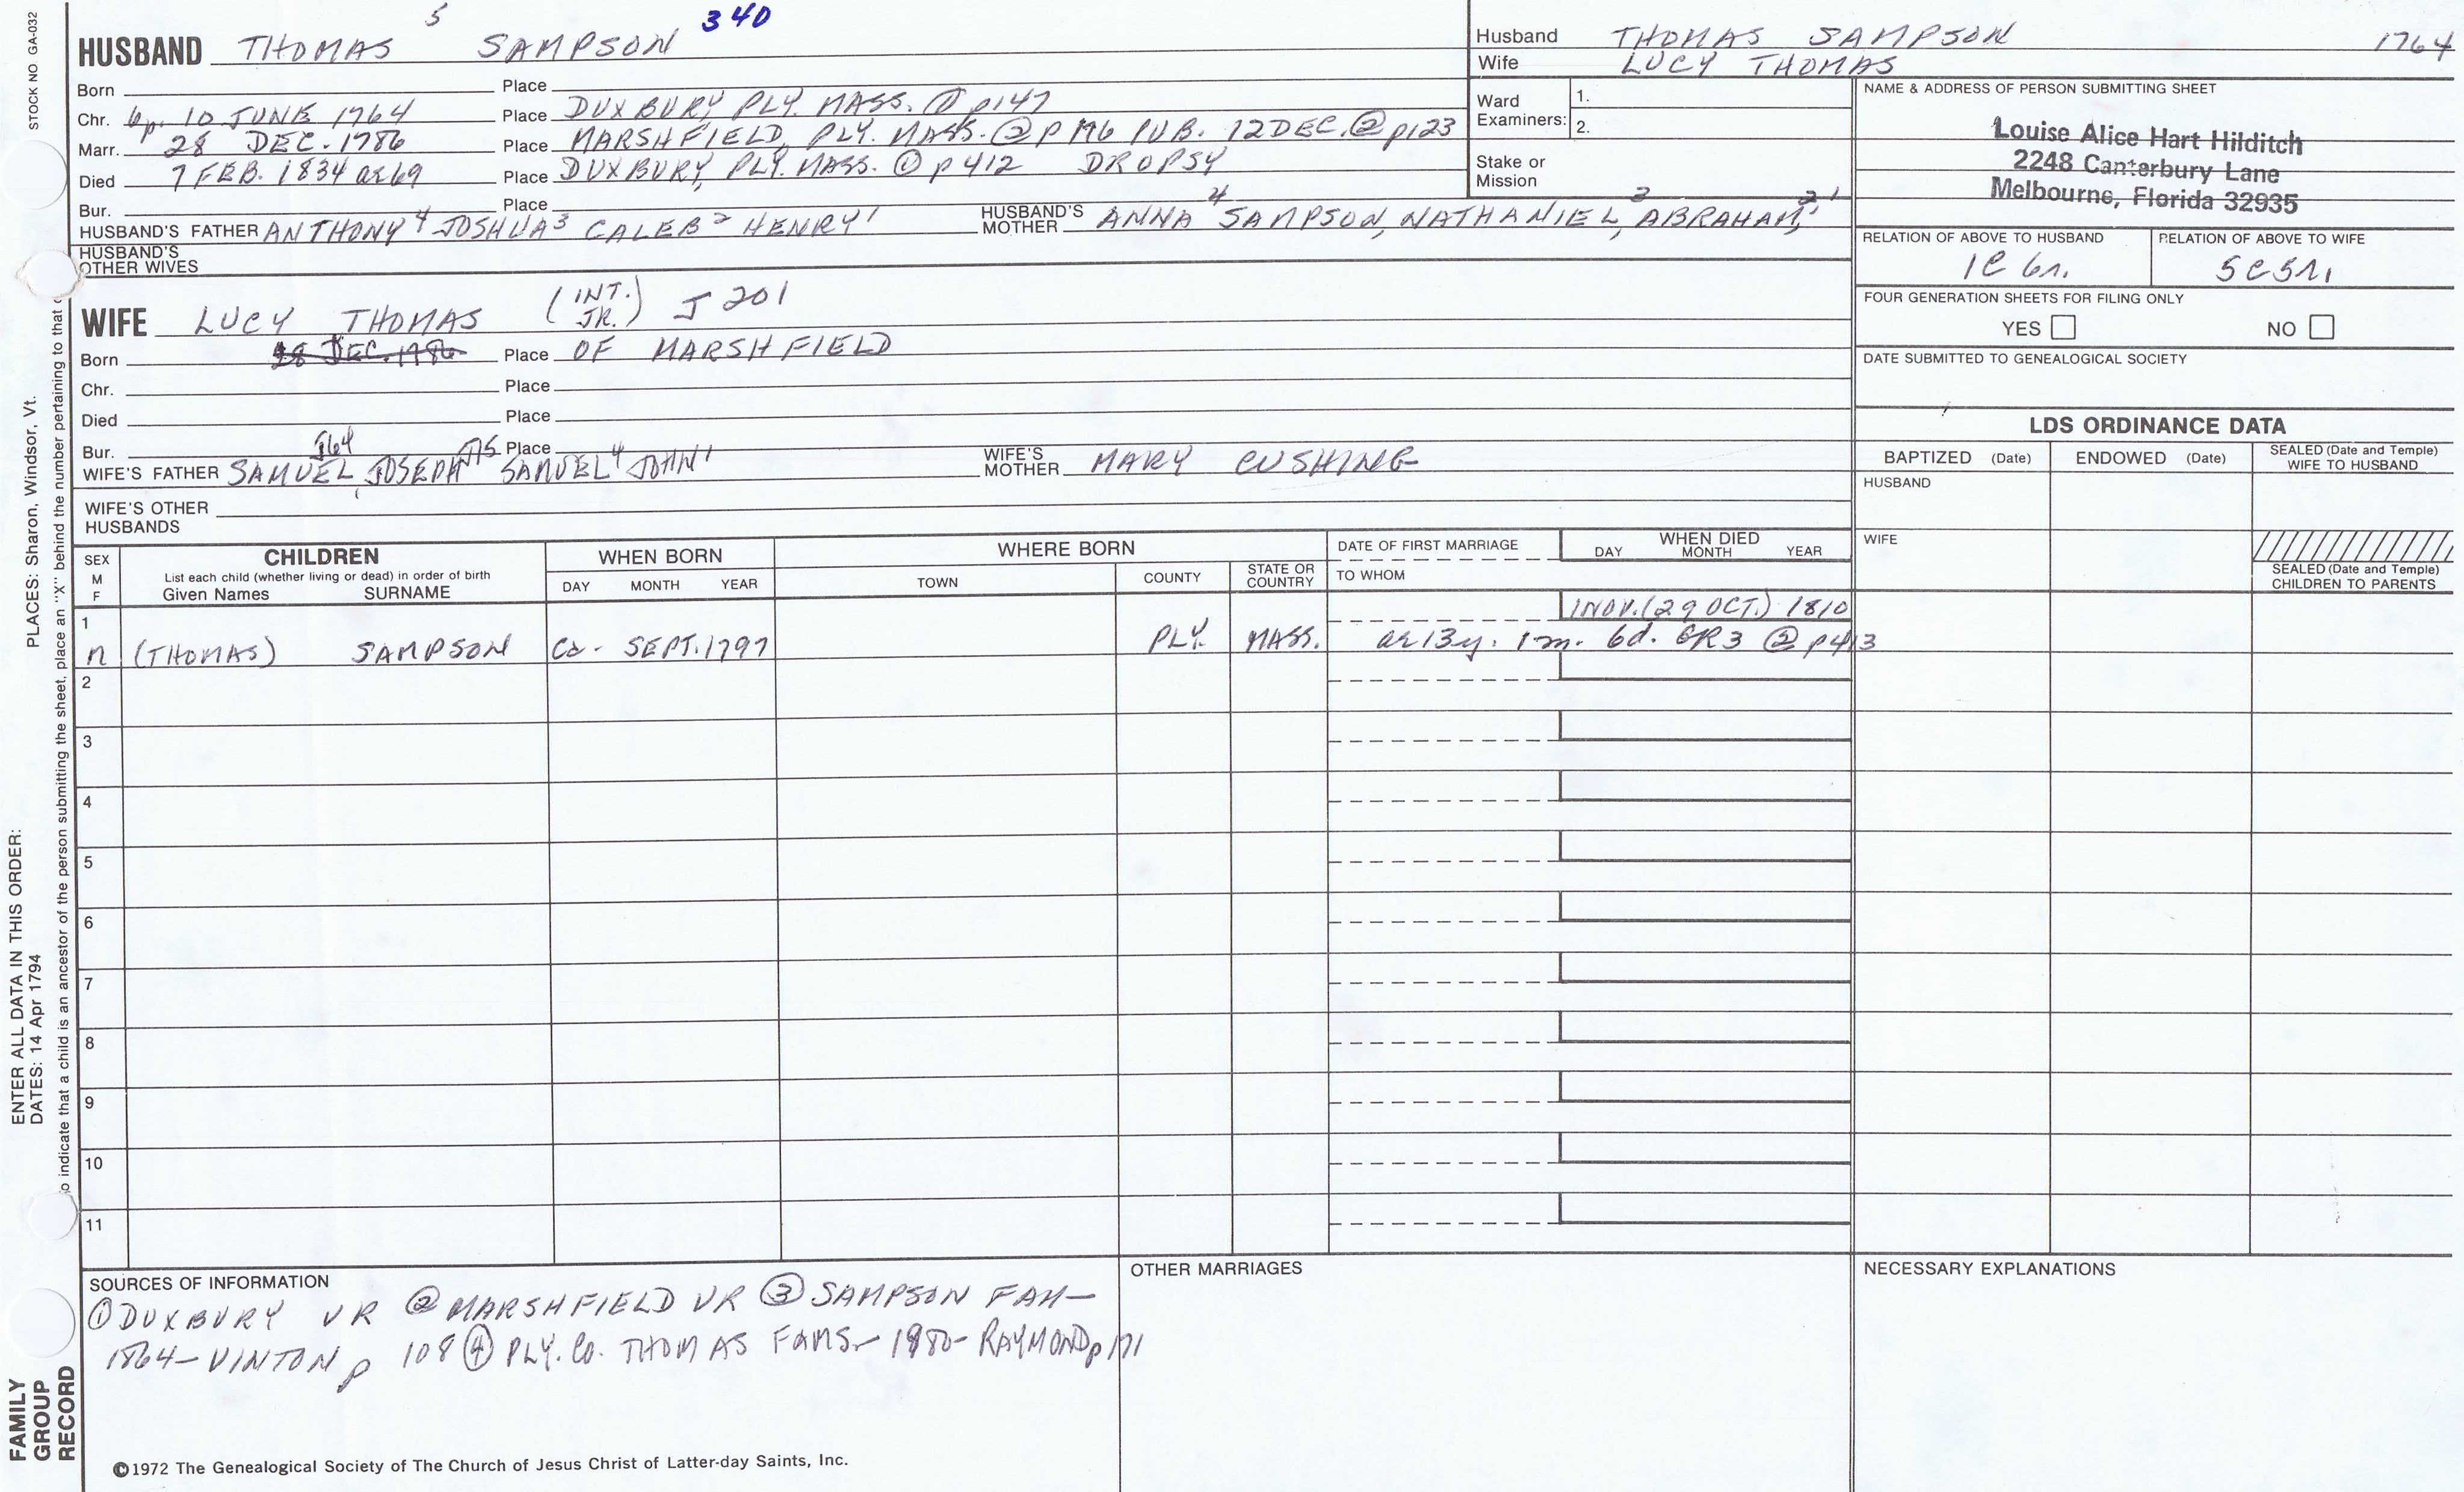 5 340
HUSBAND THOMAS SAMPSON
Born Place
Chr. bp. 10 JUNE 1764 Place DUXBURY PLY. MASS. ① p147
Marr. 28 DEC. 1786 Place MARSHFIELD, PLY. MASS. ② P 196 PUB. 12 DEC. ② p123
Died 7 FEB. 1834 ae 69 Place DUXBURY, PLY. MASS. ① p 412 DROPSY
Bur. Place
HUSBAND'S FATHER ANTHONY⁴ JOSHUA³ CALEB² HENRY¹ HUSBAND'S MOTHER ANNA⁴ SAMPSON, NATHANIEL³, ABRAHAM²,¹
HUSBAND'S OTHER WIVES
WIFE LUCY THOMAS (INT. JR.) J 201
Born 28 DEC. 1786 Place OF MARSHFIELD
Chr. Place
Died Place
Bur. Place
WIFE'S FATHER SAMUEL, JOSEPH SAMUEL⁴ JOHN¹ WIFE'S MOTHER MARY CUSHING
J64
WIFE'S OTHER HUSBANDS
Husband THOMAS SAMPSON 1764
Wife LUCY THOMAS
Ward Examiners: 1.
2.
Stake or Mission
NAME & ADDRESS OF PERSON SUBMITTING SHEET
Louise Alice Hart Hilditch
2248 Canterbury Lane
Melbourne, Florida 32935
RELATION OF ABOVE TO HUSBAND RELATION OF ABOVE TO WIFE
1C 6r. 5C5r.
FOUR GENERATION SHEETS FOR FILING ONLY
YES NO
DATE SUBMITTED TO GENEALOGICAL SOCIETY
LDS ORDINANCE DATA
BAPTIZED (Date) ENDOWED (Date) SEALED (Date and Temple) WIFE TO HUSBAND
HUSBAND
WIFE
SEALED (Date and Temple) CHILDREN TO PARENTS
SEX M F CHILDREN WHEN BORN WHERE BORN DATE OF FIRST MARRIAGE WHEN DIED
List each child (whether living or dead) in order of birth
Given Names SURNAME DAY MONTH YEAR TOWN COUNTY STATE OR COUNTRY TO WHOM DAY MONTH YEAR
1 1 NOV. (29 OCT.) 1810
M (THOMAS) SAMPSON Ca - SEPT. 1797 PLY. MASS. ae 13y. 1m. 6d. GR3 @ p413
2
3
4
5
6
7
8
9
10
11
SOURCES OF INFORMATION
① DUXBURY VR ② MARSHFIELD VR ③ SAMPSON FAM—
1864 - VINTON p 108 ④ PLY. Co. THOMAS FAMS - 1980 - RAYMOND p 171
OTHER MARRIAGES
NECESSARY EXPLANATIONS
©1972 The Genealogical Society of The Church of Jesus Christ of Latter-day Saints, Inc.
STOCK NO GA-032
PLACES: Sharon, Windsor, Vt.
ENTER ALL DATA IN THIS ORDER:
DATES: 14 Apr 1794
o indicate that a child is an ancestor of the person submitting the sheet, place an "X" behind the number pertaining to that c
FAMILY
GROUP
RECORD